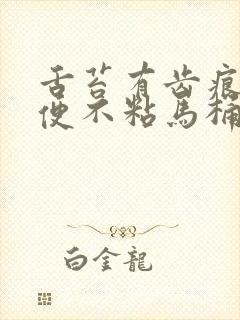 舌苔有齿痕
便不粘馬桶
白金龍